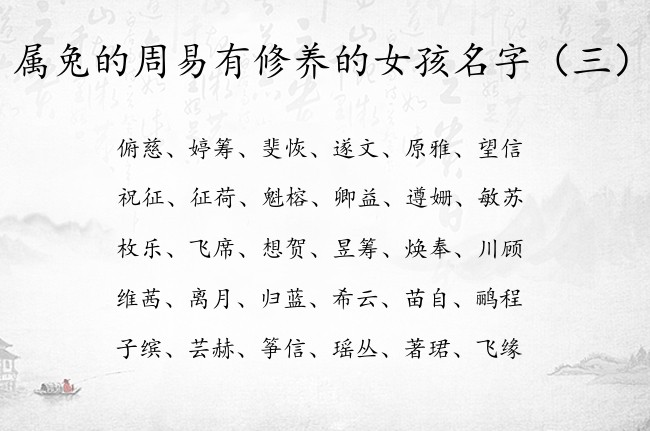 属兔的周易有修养的女孩名字（三）
俯慈、婷筹、斐恢、遂文、原雅、望信
祝征、征荷、魁榕、卿益、遵姗、敏苏
枚乐、飞席、想贺、昱筹、焕奉、川顾
维茜、离月、归蓝、希云、苗自、鹂程
子缤、芸赫、筝信、瑶丛、著珺、飞缘